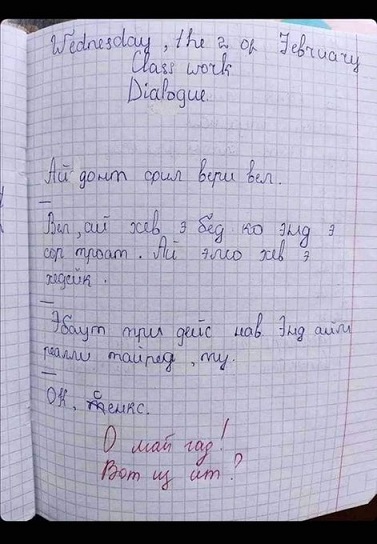 Wednesday, the 2 of February
Class work
Dialogue.
Ай донт фил вери вел.
—
Вел, ай хев э бед ко энд э
сор троат. Ай элсо хев э
хедейк.
—
Эбаут три дейс нав. Энд айм
реалли тайред, ту.
—
ОК, сенкс.
О май гад!
Вот из ит?